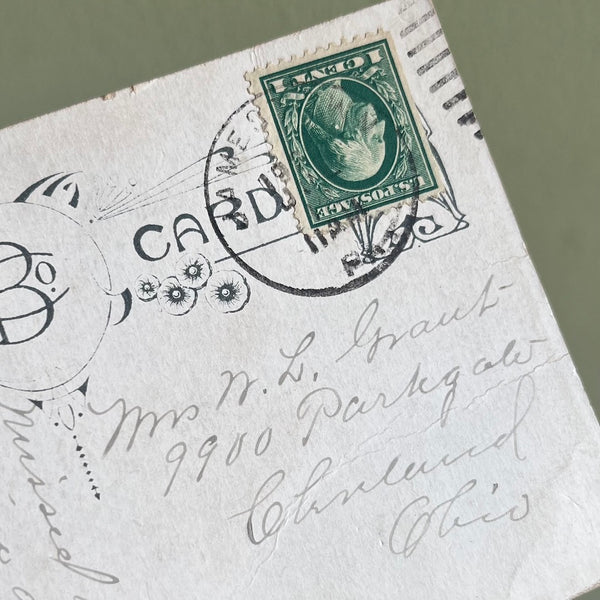 1 CENT 1
U.S. POSTAGE
CARD
Co.
PA.
Mrs W. L. Grant
9900 Parkgate
Cleveland
Ohio
missed